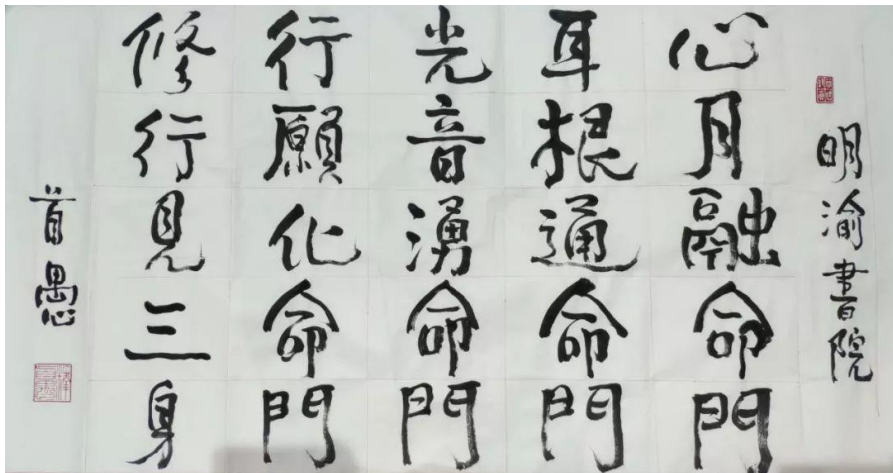 明渝書院
心月融命門
耳根通命門
光音湧命門
行願化命門
修行見三身
首愚